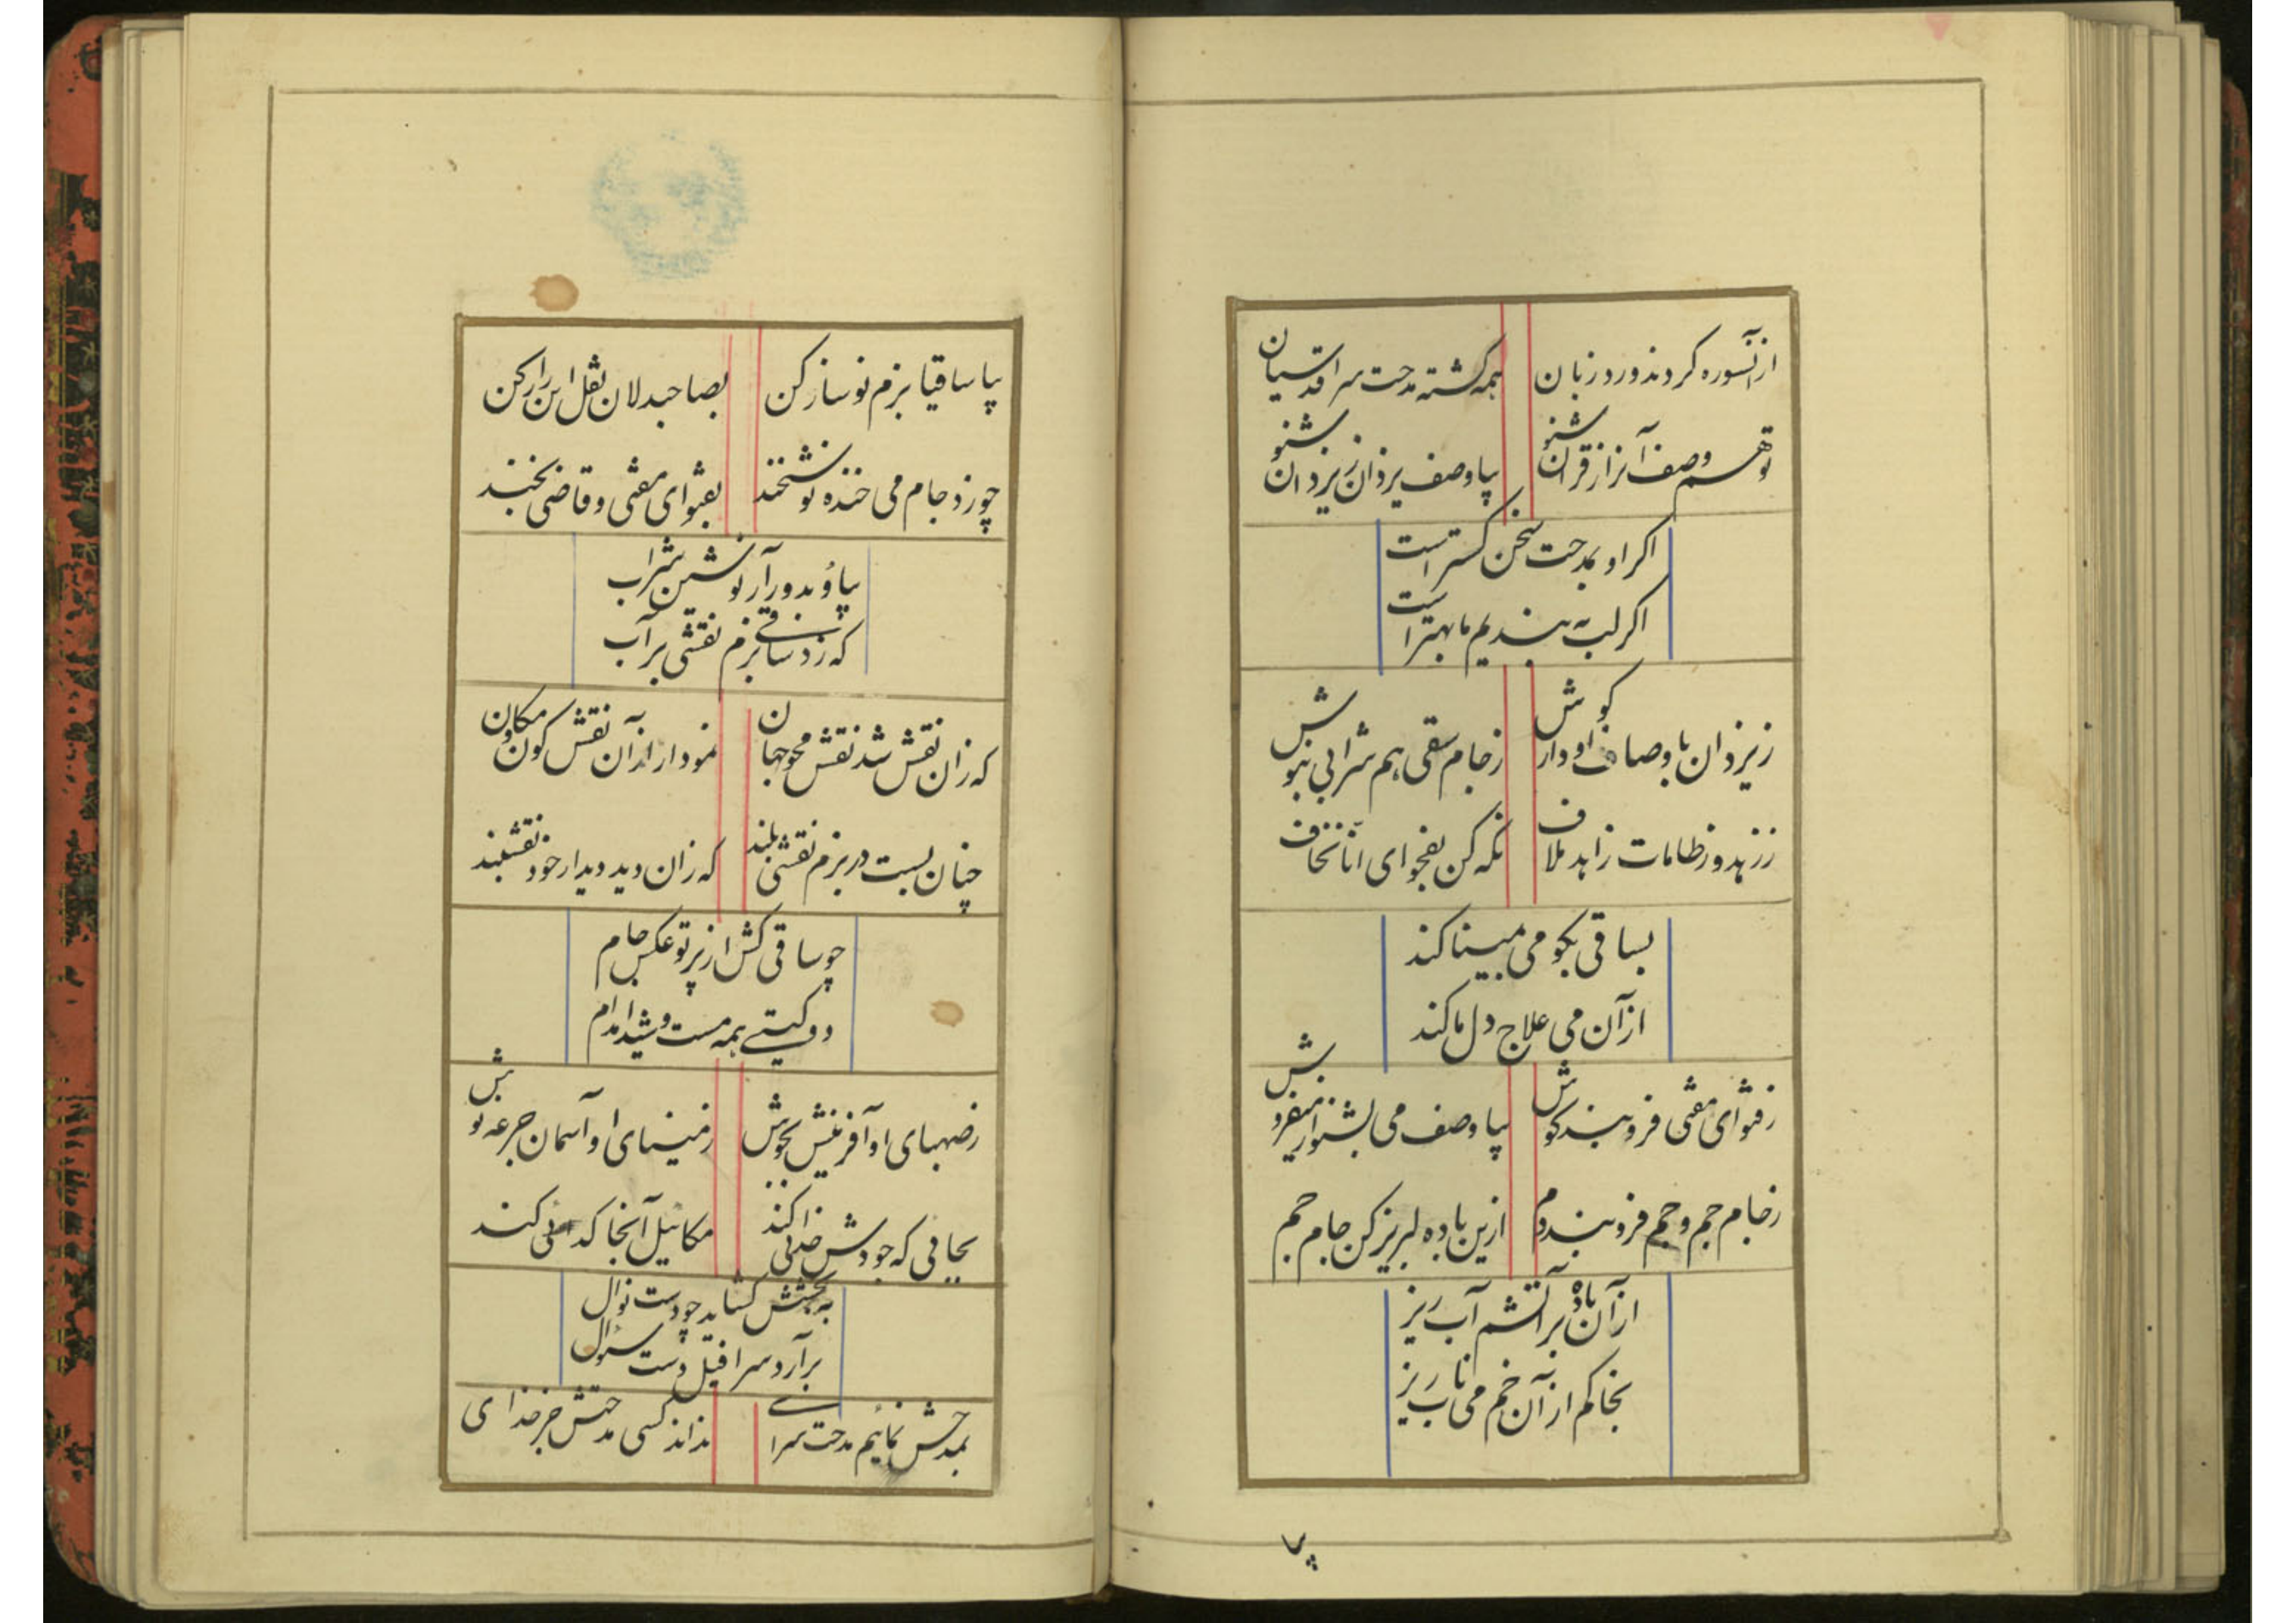 از آنسوره کردند ورد زبان
همه گشته مدحت سرا قدسیان
تو هم وصف آنرا ز قرآن شنو
بیا وصف یزدان ز یزدان شنو
اگر او بمدحت سخن گستر است
اگر لب به بندیم ما بهتر است
ز یزدان باوصاف او دار گوش
ز جام سقی هم شرابی بنوش
ز زهد و ز طامات زاهد ملاف
نگه کن بفحوای انّا نخاف
بساقی بگو می بمینا کند
از آن می علاج دل ما کند
ز فتوای مفتی فروبند گوش
بیا وصف می بشنو از میفروش
ز جام جم و جم فروبند دم
ازین باده لبریز کن جام جم
از آن باده بر آتشم آب ریز
بخاکم از آن خم می ناب ریز
بیا
بیا ساقیا بزم نو ساز کن
بصاحبدلان نقل این راز کن
چو زد جام می خنده نوشخند
بفتوای مفتی و قاضی بخند
بیاور بدور آر نوشین شراب
که زد ساقی بزم نقشی بر آب
که زان نقش شد نقش محو جهان
نمودار از آن نقش کون و مکان
چنان بست در بزم نقشی بلند
که زان دید دیدار خود نقشبند
چو ساقی کش از پرتو عکس جام
دو گیتی همه مست و شیدا مدام
ز صهبای او آفرینش بجوش
زمینهای او آسمان جرعه نوش
بجائی که جودش خدائی کند
مکائیل آنجا گدائی کند
به بخشش گشاید چو دست نوال
برآرد سرافیل دست سوال
بمدحش نمائیم مدحت سرای
نداند کسی مدحتش جز خدای